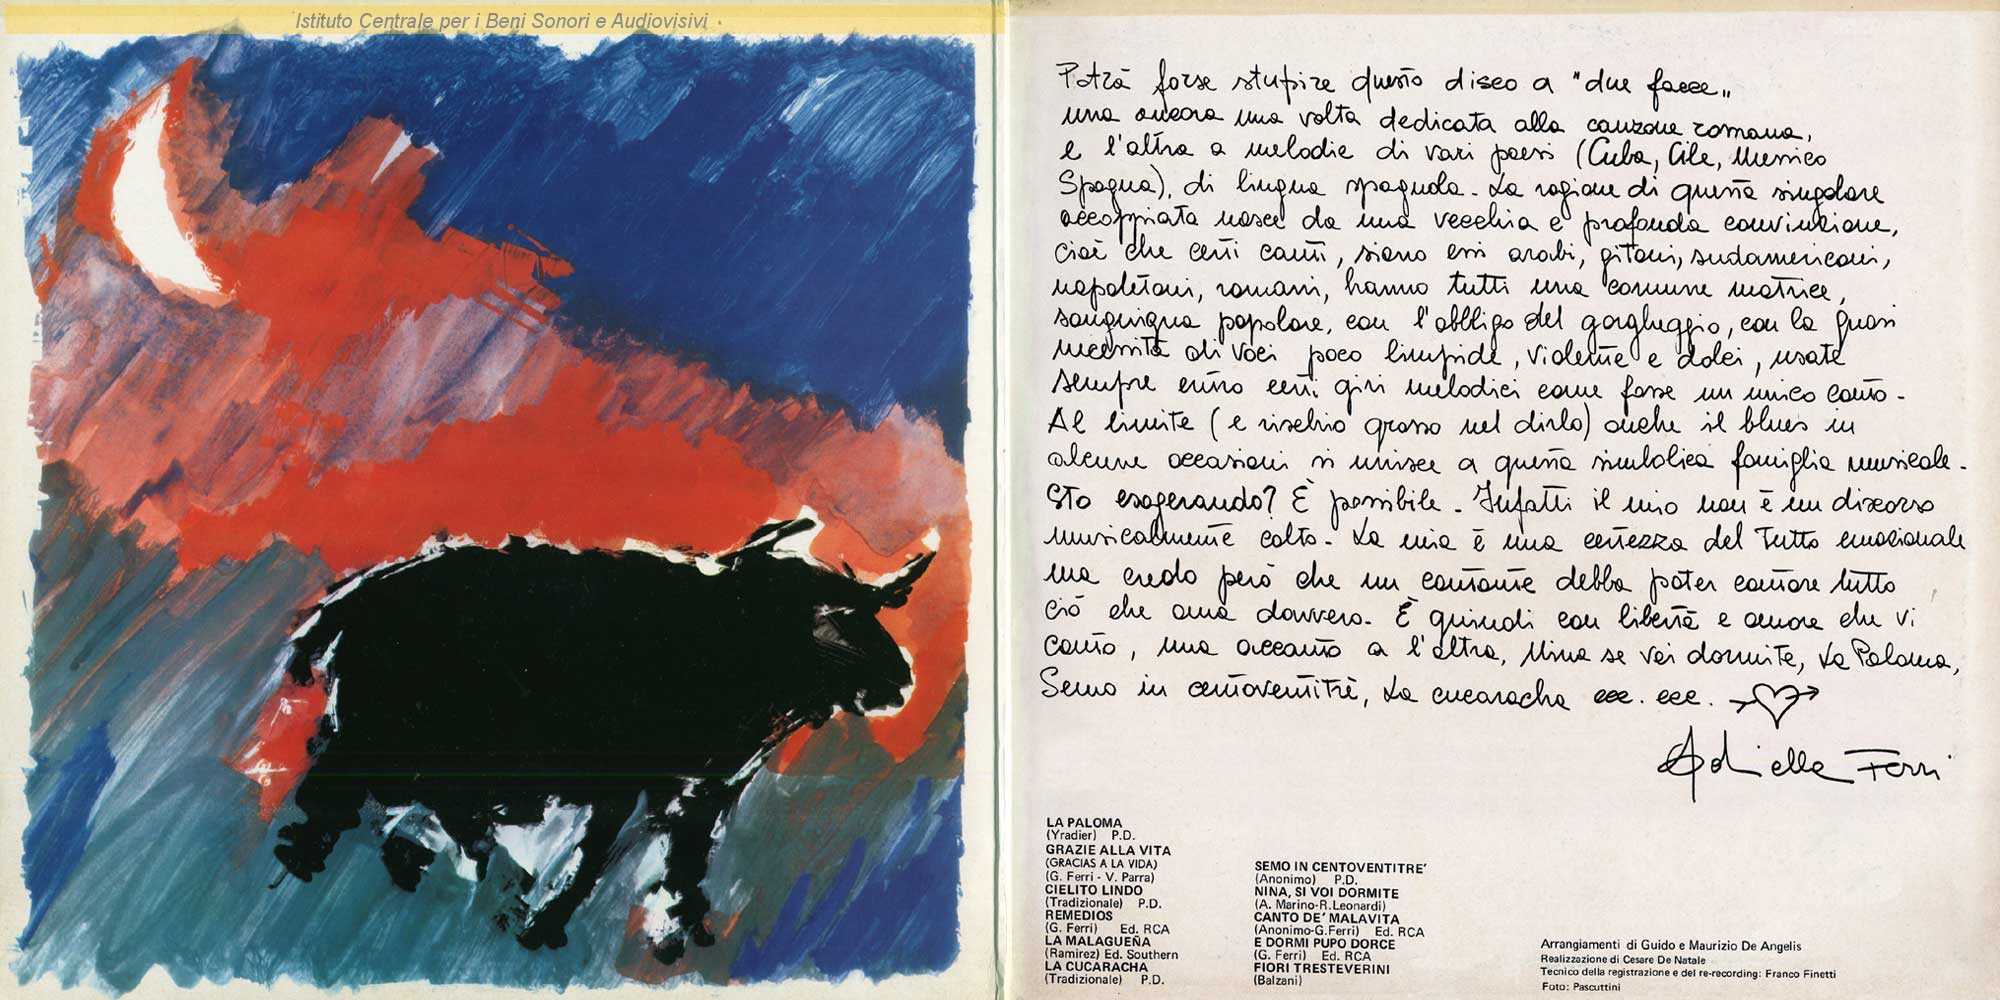 Istituto Centrale per i Beni Sonori e Audiovisivi
Potrà forse stupire questo disco a "due facce„
una ancora una volta dedicata alla canzone romana,
e l'altra a melodie di vari paesi (Cuba, Cile, Messico
Spagna), di lingua spagnola. La ragione di questa singolare
accoppiata nasce da una vecchia e profonda convinzione,
cioè che certi canti, siano essi arabi, gitani, sudamericani,
napoletani, romani, hanno tutti una comune matrice,
sanguigna popolare, con l'obbligo del gorgheggio, con la quasi
necessità di voci poco limpide, violente e dolci, usate
sempre entro certi giri melodici come fosse un unico canto.
Al limite (e rischio grosso nel dirlo) anche il blues in
alcune occasioni si unisce a questa simbolica famiglia musicale.
Sto esagerando? È possibile. Infatti il mio non è un discorso
musicalmente colto. La mia è una certezza del tutto emozionale
ma credo però che un cantante debba poter cantare tutto
ciò che ama davvero. È quindi con libertà e amore che vi
canto, una accanto a l'altra, Nina se voi dormite, La Paloma,
Semo in centoventitrè, La cucaracha ecc. ecc.
Gabriella Ferri
LA PALOMA
(Yradier) P.D.
GRAZIE ALLA VITA
(GRACIAS A LA VIDA)
(G. Ferri - V. Parra)
CIELITO LINDO
(Tradizionale) P.D.
REMEDIOS
(G. Ferri) Ed. RCA
LA MALAGUEÑA
(Ramirez) Ed. Southern
LA CUCARACHA
(Tradizionale) P.D.
SEMO IN CENTOVENTITRE'
(Anonimo) P.D.
NINA, SI VOI DORMITE
(A. Marino-R.Leonardi)
CANTO DE' MALAVITA
(Anonimo-G.Ferri) Ed. RCA
E DORMI PUPO DORCE
(G. Ferri) Ed. RCA
FIORI TRESTEVERINI
(Balzani)
Arrangiamenti di Guido e Maurizio De Angelis
Realizzazione di Cesare De Natale
Tecnico della registrazione e del re-recording: Franco Finetti
Foto: Pascuttini